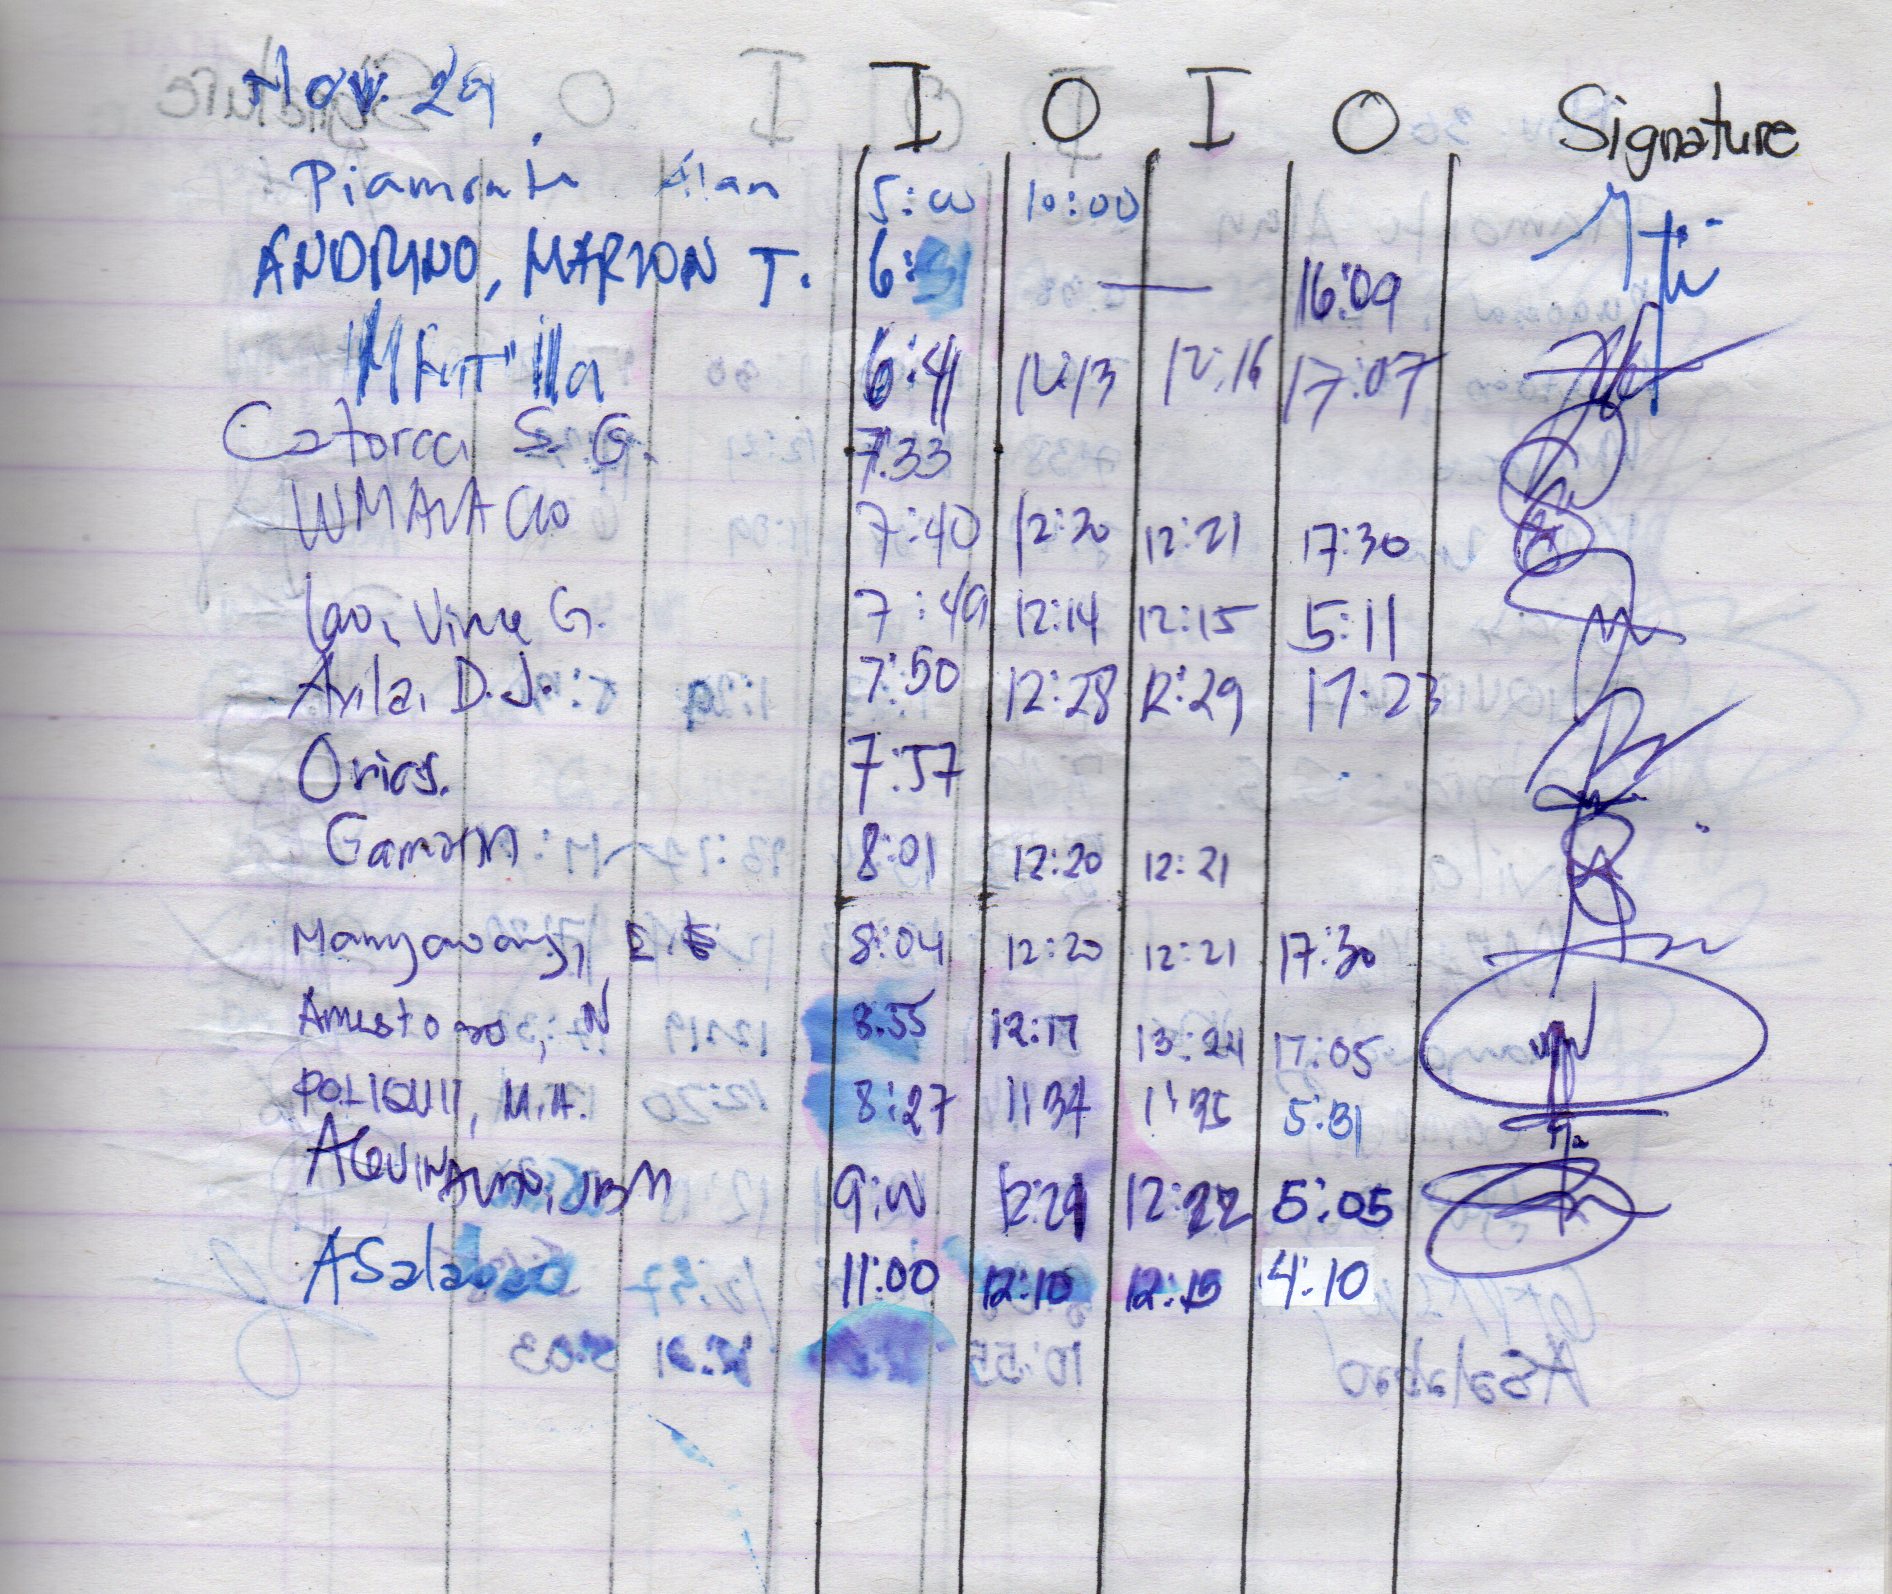 Nov. 29 I O I O Signature
Piamonte Alan 5:00 10:00
ANDRINO, MARION T. 6:31 — 16:09
Mantilla 6:41 12:13 12:16 17:07
Catorce S. G. 7:33
7:40 12:20 12:21 17:30
Lao, Vince G. 7:49 12:14 12:15 5:11
Avila, D.J. 7:50 12:28 12:29 17:23
Orias. 7:57
8:01 12:20 12:21
Manyawang, E. 8:04 12:20 12:21 17:30
N 8:55 12:17 13:24 17:05
POLIQUIT, M.A. 8:27 1:35 5:31
AGUINALDO, JBM 9:00 12:22 5:05
ASalabao 11:00 12:10 12:15 4:10